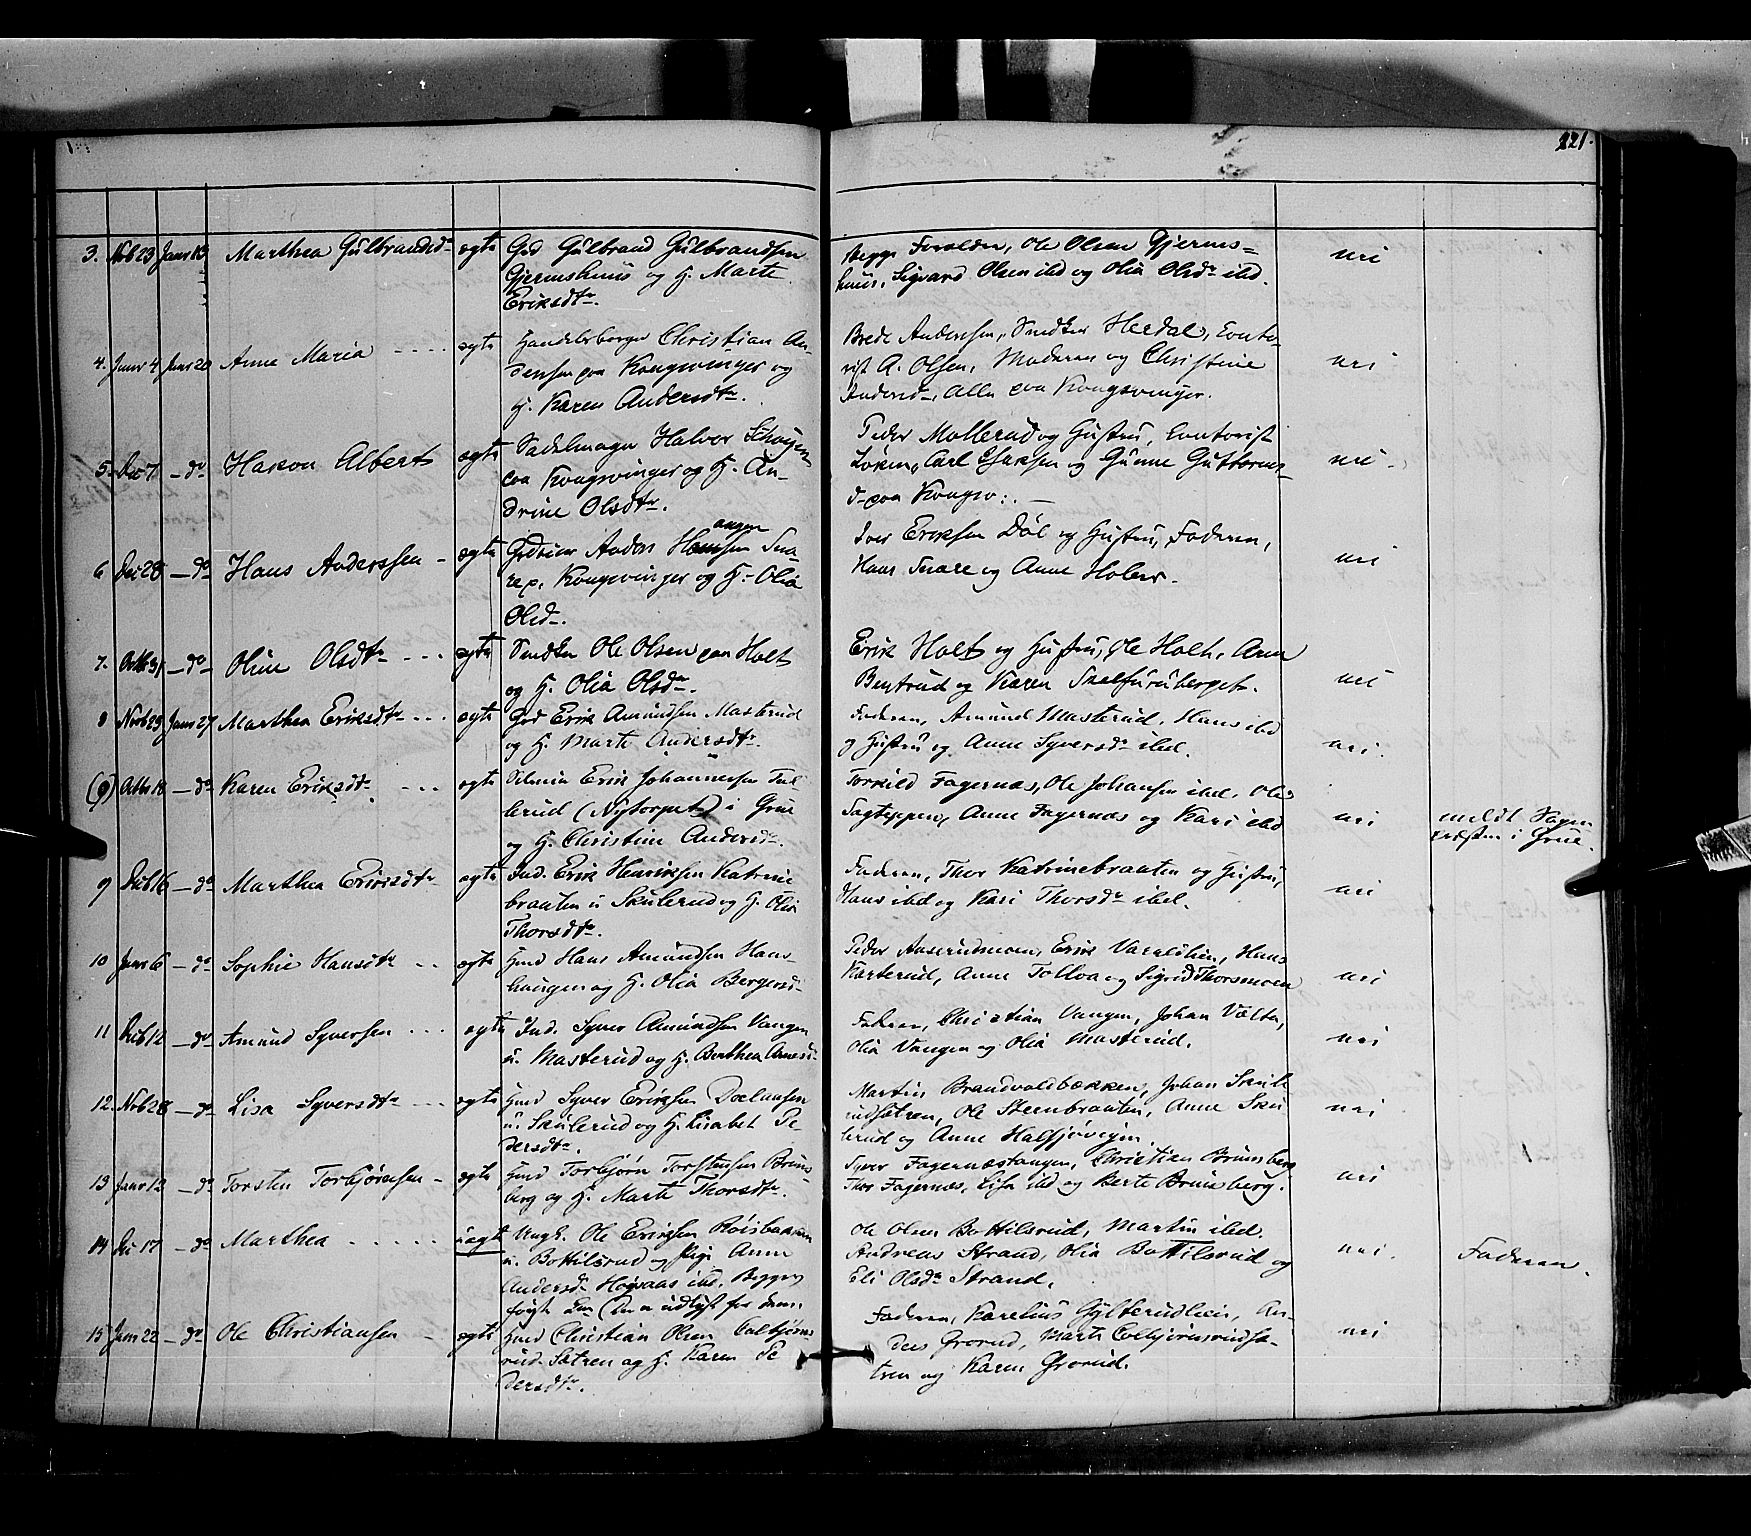 221.
3. Nvb 23 Janr 13 Marthea Gulbrandsdr ægte Gd Gulbrand Gulbrandsen
Gjermshuus og H. Marte
Eriksdtr.
Begge Foreldre, Ole Olsen Gjerms=
huus, Sigvard Olsen ibd og Olia Olsdr ibd.
nei
4. Janr 4 Janr 20 Anne Maria ægte Handelsborger Christian An-
dersen paa Kongsvinger og
H. Karen Andersdtr.
Brede Andersen, Snedker Heedal, Conto-
rist A. Olsen, Moderen og Christine
Andersd, alle paa Kongsvinger.
nei
5. Dec 7 - do Hakon Albert ægte Sadelmager Halvor Schøyen
paa Kongsvinger og H. An-
drine Olsdtr.
Peder Møllerud og Hustru, Contorist
Løken, Carl Isaksen og Gunne Guttorms-
d paa Kongsv:.
nei
6 Dec 28 - do Hans Anderssen ægte Anders Hansen Sna-
re p. Kongsvinger og H. Olia
Olsd.
Iver Eriksen Døl og Hustru, Faderen,
Hans Snare og Anne Holen.
nei
7. Octb 31 - do Oline Olsdtr ægte Snedker Ole Olsen paa Holt
og H. Olia Olsdr.
Erik Holt og Hustru, Ole Holt, Anne
Bentrud og Karen Skalfuruberget.
nei
8 Novb 29 Janr 27 Marthea Eriksdtr ægte Gd Erik Amundsen Masterud
og H. Marte Andersdtr.
Faderen, Amund Masterud, Hans ibd
og Hustru og Anne Syversdr ibd.
nei
(9) Octbr 18 - do Karen Eriksdtr ægte Erik Johannesen Ful-
lerud (Nytorpet) i Grue
og H. Christine Andersdr.
Torkild Fagernæs, Ole Johansen ibd, Ole
Sagteppen, Anne Fagernæs og Kari ibd
nei
meldt Sogne
præsten i Grue.
9 Decb 16 - do Marthea Eriksdtr ægte Ind. Erik Henriksen Katrine
braaten u. Skulerud og H. Olia
Thorsdtr.
Faderen, Thor Katrinebraaten og Hustru,
Hans ibd og Kari Thorsdr ibd.
nei
10 Janr 6 - do Sophie Hansdtr ægte Hmd Hans Amundsen Hans-
haugen og H. Olia Bergersd
Peder Aaserudmoen, Erik Varaldlien, Hans
Karterud, Anne Tolloa og Sigrid Thorsmoen
nei
11 Decb 12 - do Amund Syversen ægte Ind. Syver Amundsen Vangen
u. Masterud og H. Berthea Arnesd
Faderen, Christian Vangen, Johan Vælta,
Olia Vangen og Olia Masterud.
nei
12. Nvb 28 - do Lisa Syversdtr ægte Hmd Syver Eriksen Dælausen
u. Skulerud og H. Lisabet Pe-
dersdtr.
Martin Brandvoldbækken, Johan Skule
rudsætren, Ole Steenbraaten, Anne Sku
lerud og Anne Halsjøvejen.
nei
13 Janr 12 - do Torsten Torbjørnsen ægte Hmd Torbjørn Torstensen Bruns
berg og H. Marte Thorsdtr.
Syver Fagernæstangen, Christian Brunsberg
Thor Fagernæs, Lisa ibd og Berte Brunsberg.
nei
14 Dec 17 - do Marthea uægte Ungk. Ole Eriksen
u. Bottilsrud og Pige Anne
Andersd Høgaas ibd. Begges
første Leiermaal
Ole Olsen Bottilsrud, Martin ibd.
Andreas Strand, Olia Bottilsrud og
Eli Olsdr Strand.
nei.
Faderen.
15 Janr 22 - do Ole Christiansen ægte Hmd Christian Olsen Colbjørns
rud-Sætren og H. Karen Pe
dersdtr.
Faderen, Karelius Gylterudlien, An-
ders Grorud, Marte Colbjørnsrudsæ-
tren og Karen Grorud.
nei